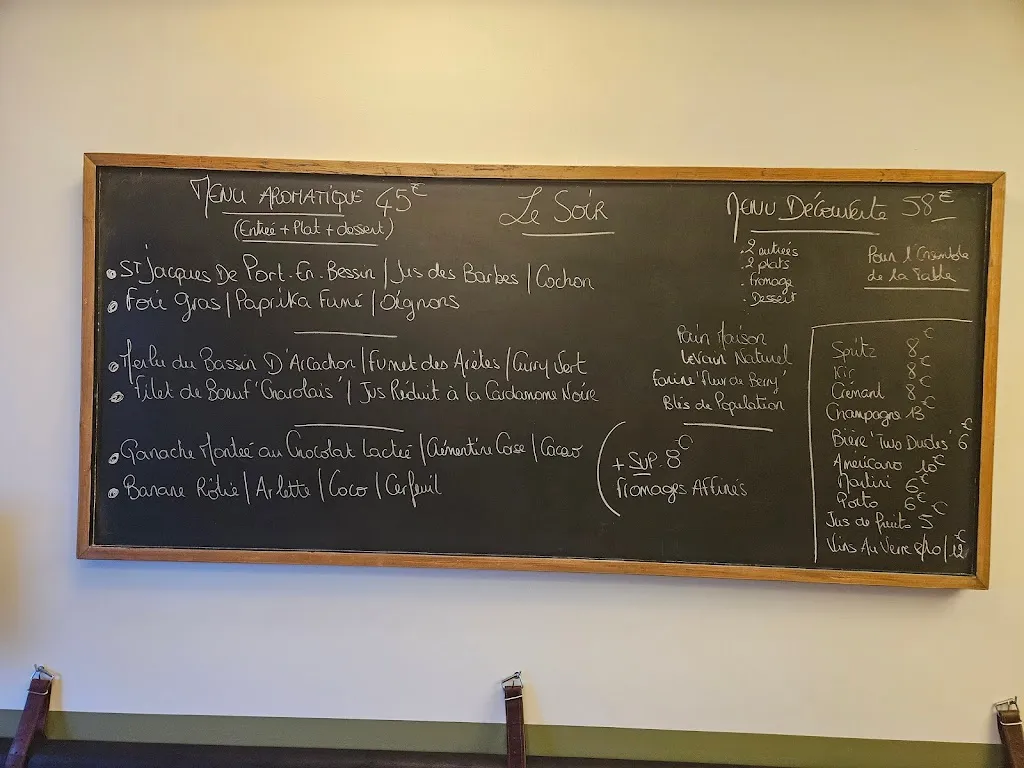 MENU AROMATIQUE 45€
(Entrée + Plat + dessert)
Le Soir
MENU Découverte 58€
. 2 entrées
. 2 plats
. fromage
. Dessert
Pour l'Ensemble
de la Table
St Jacques De Port-En-Bessin / Jus des Barbes / Cochon
Foie Gras / Paprika Fumé / Oignons
Merlu du Bassin D'Arcachon / Fumet des Arêtes / Curry Vert
Filet de Boeuf 'Charolais' / Jus Réduit à la Cardamome Noire
Ganache Montée au Chocolat Lacté / Clémentine Corse / Cacao
Banane Rôtie / Arlette / Coco / Cerfeuil
Pain Maison
Levain Naturel
Farine 'Fleur de Berry'
Blés de Population
+ SUP. 8€
Fromages Affinés
Spritz 8€
Kir 8€
Crémant 8€
Champagne 13€
Bière 'Two Dudes' 6€
Américano 10€
Martini 6€
Porto 6€
Jus de fruits 5€
Vins Au Verre 8/10/12€